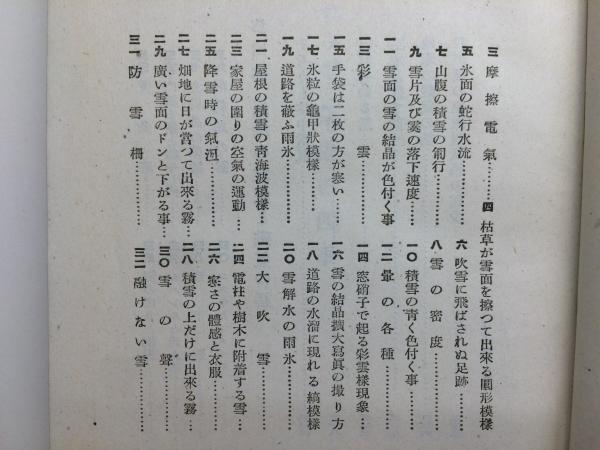 三　摩擦電氣………
四　枯草が雪面を擦つて出來る圓形模樣
五　氷面の蛇行水流………
六　吹雪に飛ばされぬ足跡………
七　山腹の積雪の匍行………
八　雪の密度………
九　雪片及び霙の落下速度………
一〇　積雪の青く色付く事………
一一　雪面の雪の結晶が色付く事
一二　暈の各種………
一三　彩雲………
一四　窓硝子で起る彩雲樣現象………
一五　手袋は二枚の方が寒い………
一六　雪の結晶擴大寫眞の撮り方
一七　氷粒の龜甲狀模樣………
一八　道路の水溜に現れる縞模樣
一九　道路を蔽ふ雨氷………
二〇　雪解水の雨氷………
二一　屋根の積雪の青海波模樣………
二二　大吹雪………
二三　家屋の圍りの空氣の運動………
二四　電柱や樹木に附着する雪………
二五　降雪時の氣溫………
二六　寒さの體感と衣服………
二七　畑地に日が當つて出來る霧………
二八　積雪の上だけに出來る霧………
二九　廣い雪面のドンと下がる事………
三〇　雪の聲………
三一　防雪柵………
三二　融けない雪………